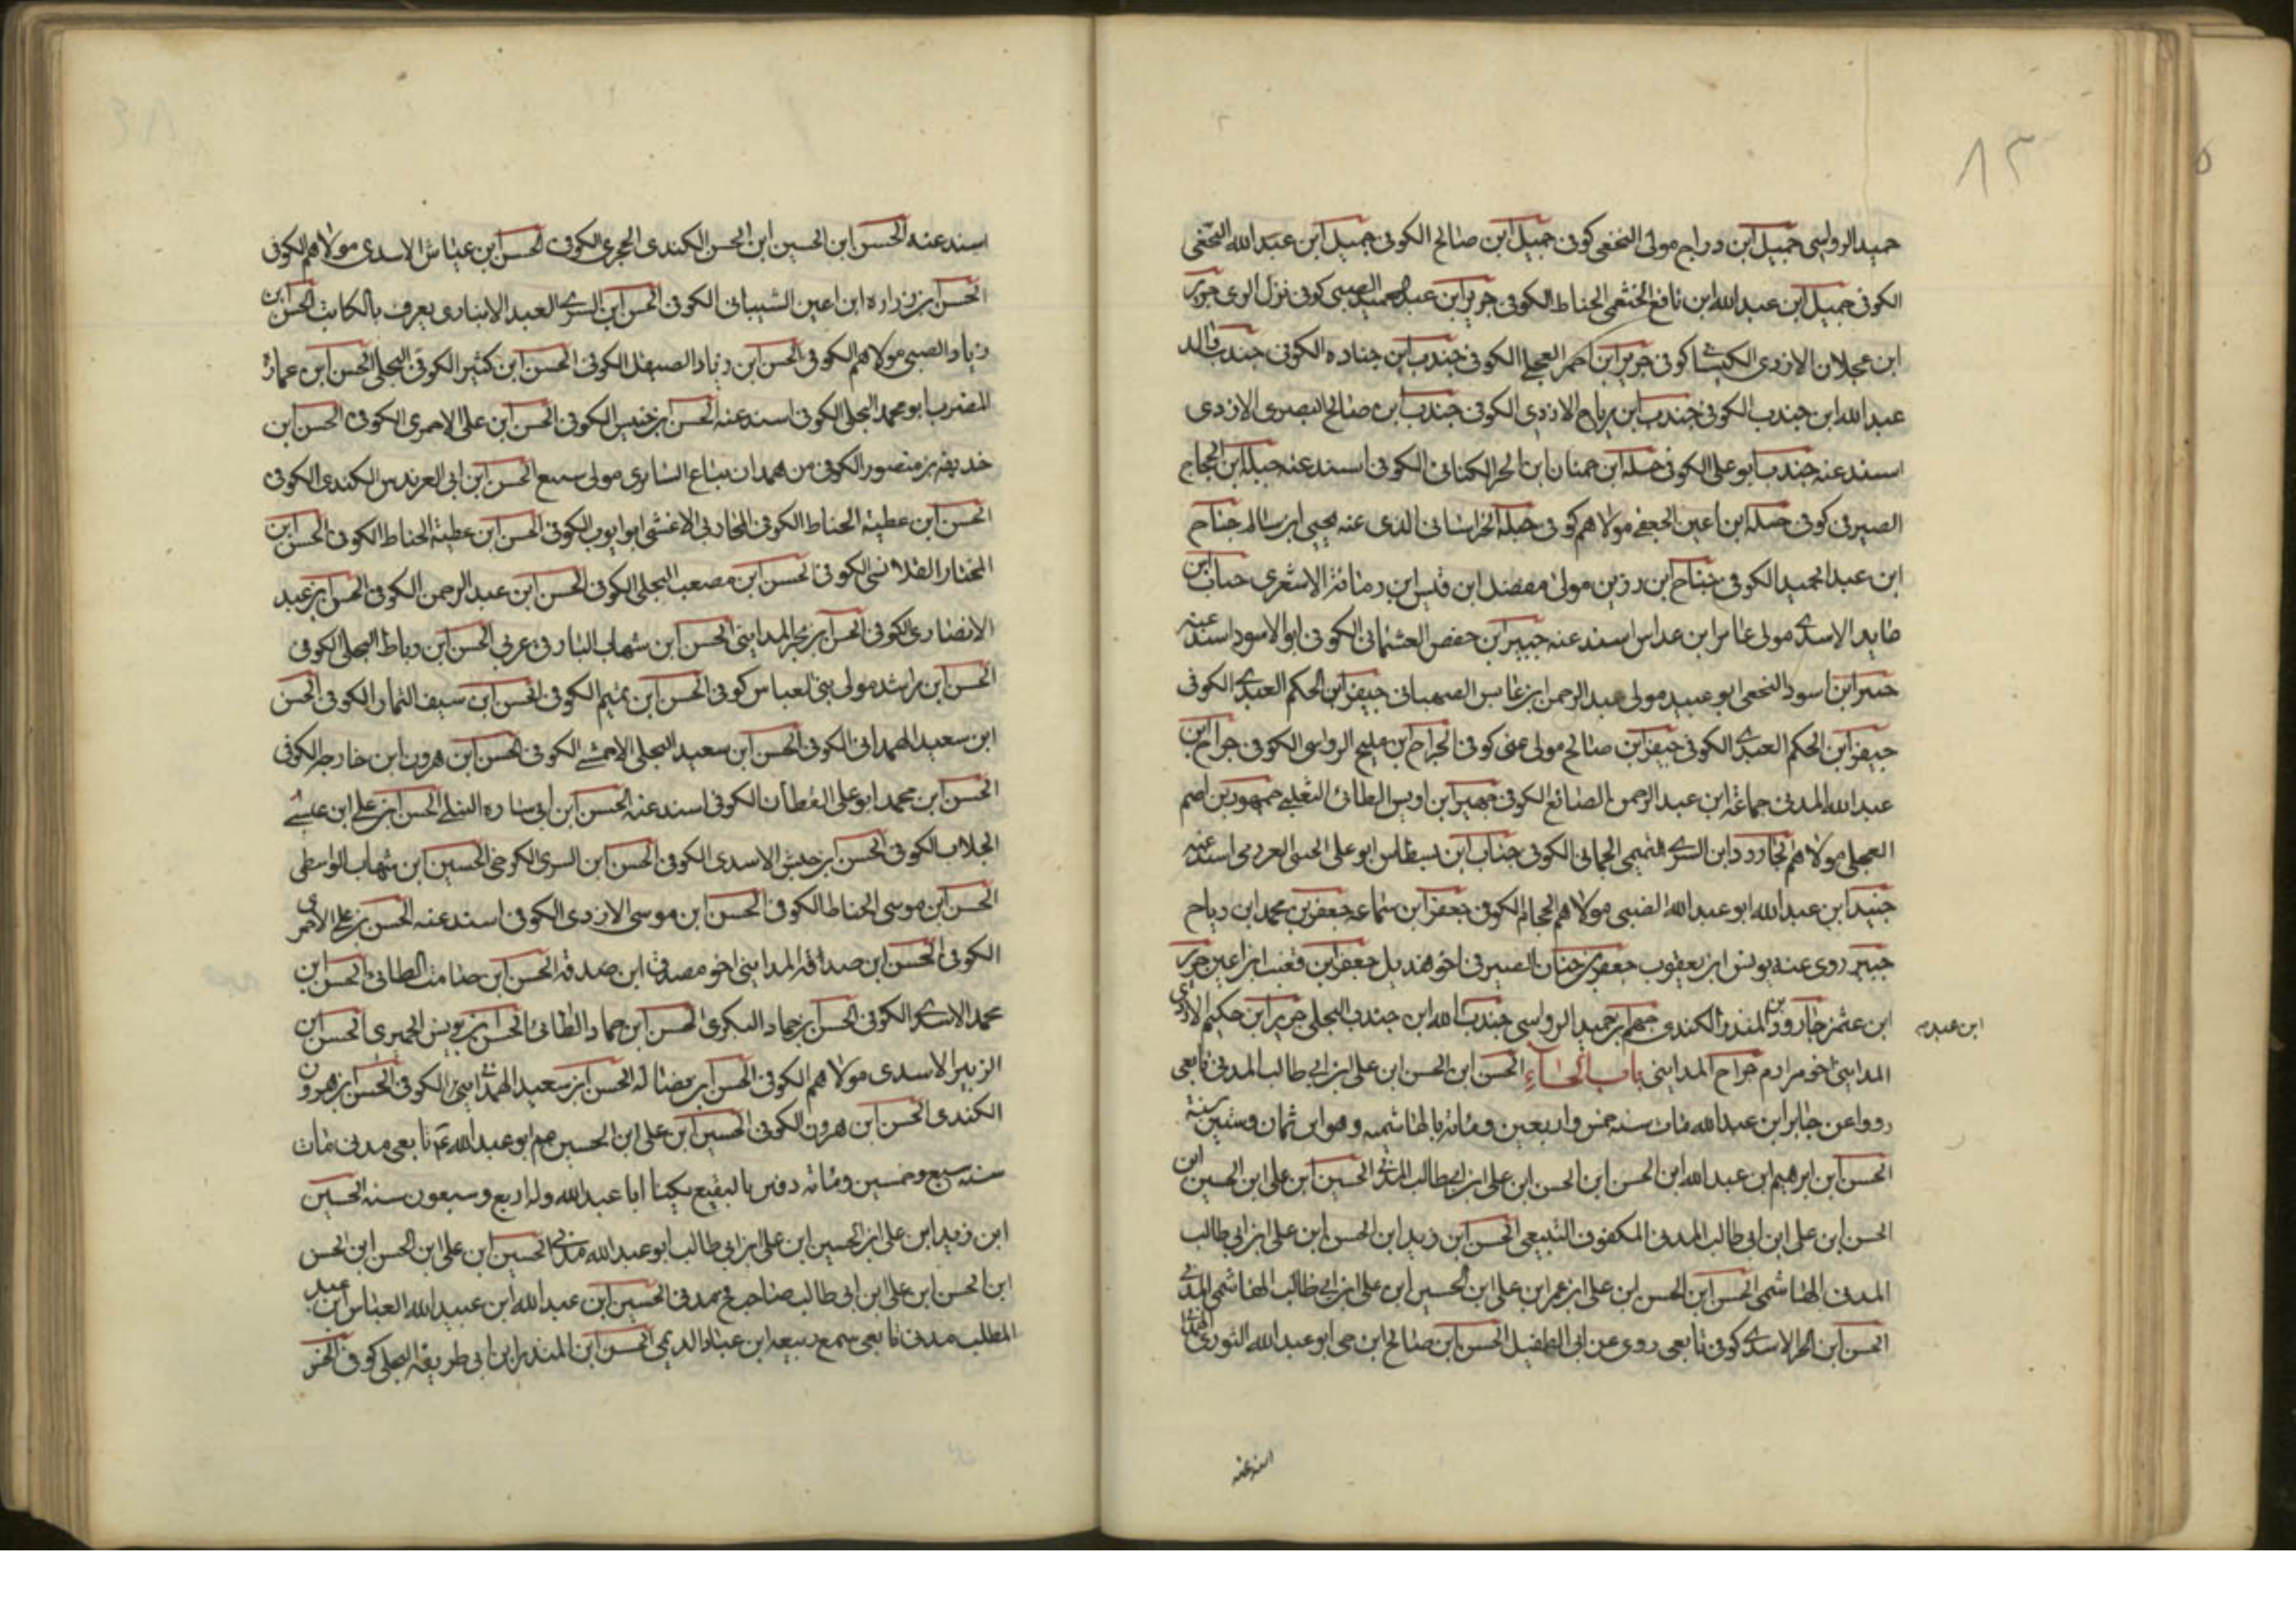 ١٣
حميد الرواسي جميل ابن دراج مولى النخعي كوفى جميل ابن صالح الكوفى جميل ابن عبد الله النخعى
الكوفى جميل ابن عبد الله ابن نافع الخثعمى الحناط الكوفى جرير ابن عبد الحميد الضبى كوفى نزل الرى جرير
ابن عجلان الازدى الكوفى جرير ابن احمر العجلى الكوفى جندب ابن جناده الكوفى جندب والد
عبد الله ابن جندب الكوفى جندب ابن رياح الازدى الكوفى جندب ابن صالح البصرى الازدى
اسند عنه جندب ابو على الكوفى جبلة ابن حنان ابن الحر الكنانى الكوفى اسند عنه جبلة ابن الحجاج
الصيرفى كوفى جبلة ابن اعين الجعفى مولاهم كوفى جبلة الخراسانى الذى عنه يحيى ابن سالم جناح
ابن عبد الحميد الكوفى جناح ابن رزين مولى مفضل ابن قيس ابن رمانة الاشعرى حباب ابن
عايد الاسدى مولى عامر ابن عداس اسند عنه جبير ابن حفص العثمانى الكوفى ابو الاسود اسند عنه
جبير ابن اسود النخعى ابو عبيد مولى عبد الرحمن ابن عابس الصهبانى جيفر ابن الحكم العبدى الكوفى
جيفر ابن الحكم العبدى الكوفى جيفر ابن صالح مولى غنى كوفى الجراح ابن مليح الرواسى الكوفى جراح ابن
عبد الله المدنى جماعة ابن عبد الرحمن الصائغ الكوفى جهير ابن اوس الطائى الثعلبى جمهور بن احمر
العجلى مولاهم الجارود ابن السرى التميمى الحمانى الكوفى جناب ابن نسطاس ابو على الجنبى العرزمى اسند عنه
جنيد ابن عبد الله ابو عبد الله الضبى مولاهم الحجام الكوفى جعفر ابن سماعه جعفر بن محمد ابن رياح
جبير روى عنه يونس ابن يعقوب جعفر بن حنان الصيرفى اخو هذيل جعفر ابن قعنب ابن اعين جرير
ابن عثمن جارود بن المنذر الكندى جهم بن حميد الرواسى جندب الله ابن جندب البجلى جرير ابن حكيم الازدى
المداينى اخو مرازم جراح المداينى باب الحاء الحسن ابن الحسن ابن على ابن ابى طالب المدنى تابعى
روواعن جابر ابن عبد الله مات سنه خمس واربعين ومائة بالهاشميه وهو ابن ثمان وستين سنة
الحسن ابن ابرهيم ابن عبد الله ابن الحسن ابن الحسن ابن على ابن ابى طالب المدنى الحسين ابن على ابن الحسين ابن
الحسن ابن على ابن ابى طالب المدنى المكفوف التبيعى الحسن ابن زيد ابن الحسن ابن على ابن ابى طالب
المدنى الهاشمى الحسن ابن الحسن ابن على ابن عمر ابن على ابن الحسين ابن على ابن ابى طالب الهاشمى المدنى
الحسن ابن الحر الاسدى كوفى تابعى روى عن ابى الطفيل الحسن ابن صالح ابن حى ابو عبد الله الثورى الهمدانى
اسند عنه
اسند عنه الحسن ابن الحسين ابن الحسن الكندى الحجرى الكوفى الحسن ابن عياش الاسدى مولاهم الكوفى
الحسن بن زراره ابن اعين الشيبانى الكوفى الحسن ابن السرى العبد الانبارى يعرف بالكاتب الحسن ابن
زياد الضبى مولاهم الكوفى الحسن ابن زياد الصيقل الكوفى الحسن ابن كثير الكوفى البجلى الحسن ابن عماره
المضرب ابو محمد البجلى الكوفى اسند عنه الحسن ابن خنيس الكوفى الحسن ابن على الاحمرى الكوفى الحسن ابن
حذيفه بن منصور الكوفى من همدان بياع السابرى مولى سبيع الحسن ابن ابى العرندس الكندى الكوفى
الحسن ابن عطية الحناط الكوفى المحاربى الاغشى ابو ايوب الكوفى الحسن ابن عطية الحناط الكوفى الحسن ابن
المختار القلانسى الكوفى الحسن ابن مصعب البجلى الكوفى الحسن ابن عبد الرحمن الكوفى الحسن ابن عبد
الانصارى الكوفى الحسن بن بحر المداينى الحسن ابن شهاب البارقى عربى الحسن ابن رباط البجلى الكوفى
الحسن ابن راشد مولى بنى العباس كوفى الحسن ابن تميم الكوفى الحسن ابن سيف التمار الكوفى الحسن
ابن سعيد الهمدانى الكوفى الحسن ابن سعيد البجلى الاحمسى الكوفى الحسن ابن هرون ابن خارجه الكوفى
الحسن ابن محمد ابو على القطان الكوفى اسند عنه الحسن ابن ابى ساره النيلى الحسن ابن على ابن عيسى
الجلاب الكوفى الحسن ابن حبيش الاسدى الكوفى الحسن ابن السرى الكرخى الحسين ابن شهاب الواسطى
الحسن ابن موسى الحناط الكوفى الحسن ابن موسى الازدى الكوفى اسند عنه الحسن بن على الاحمرى
الكوفى الحسن ابن صداقه المداينى اخو مصدق ابن صدقه الحسن ابن صامت الطائى الحسن ابن
محمد الاسدى الكوفى الحسن بن حماد البكرى الحسن ابن حماد الطائى الحسن بن يونس الحميرى الحسن ابن
الزبير الاسدى مولاهم الكوفى الحسن ابن مضاله الحسن ابن سعيد الهمدانى الكوفى الحسن ابن هرون
الكندى الحسن ابن هرون الكوفى الحسين ابن على ابن الحسين عم ابو عبد الله ع تابعى مدنى مات
سنه سبع وخمسين ومائه دفن بالبقيع يكينا ابا عبد الله وله اربع وسبعون سنه الحسين
ابن زيد ابن على ابن الحسين ابن على ابن ابى طالب ابو عبد الله مدنى الحسين ابن على ابن الحسن ابن الحسن
ابن الحسن ابن على ابن ابى طالب صاحب فخ مدنى الحسين ابن عبد الله ابن عبيد الله العباس ابن عبد
المطلب مدنى تابعى سمع ربيعه ابن عباد الديمى الحسن ابن المنذر ابن ابى طريفه البجلى كوفى الحسن